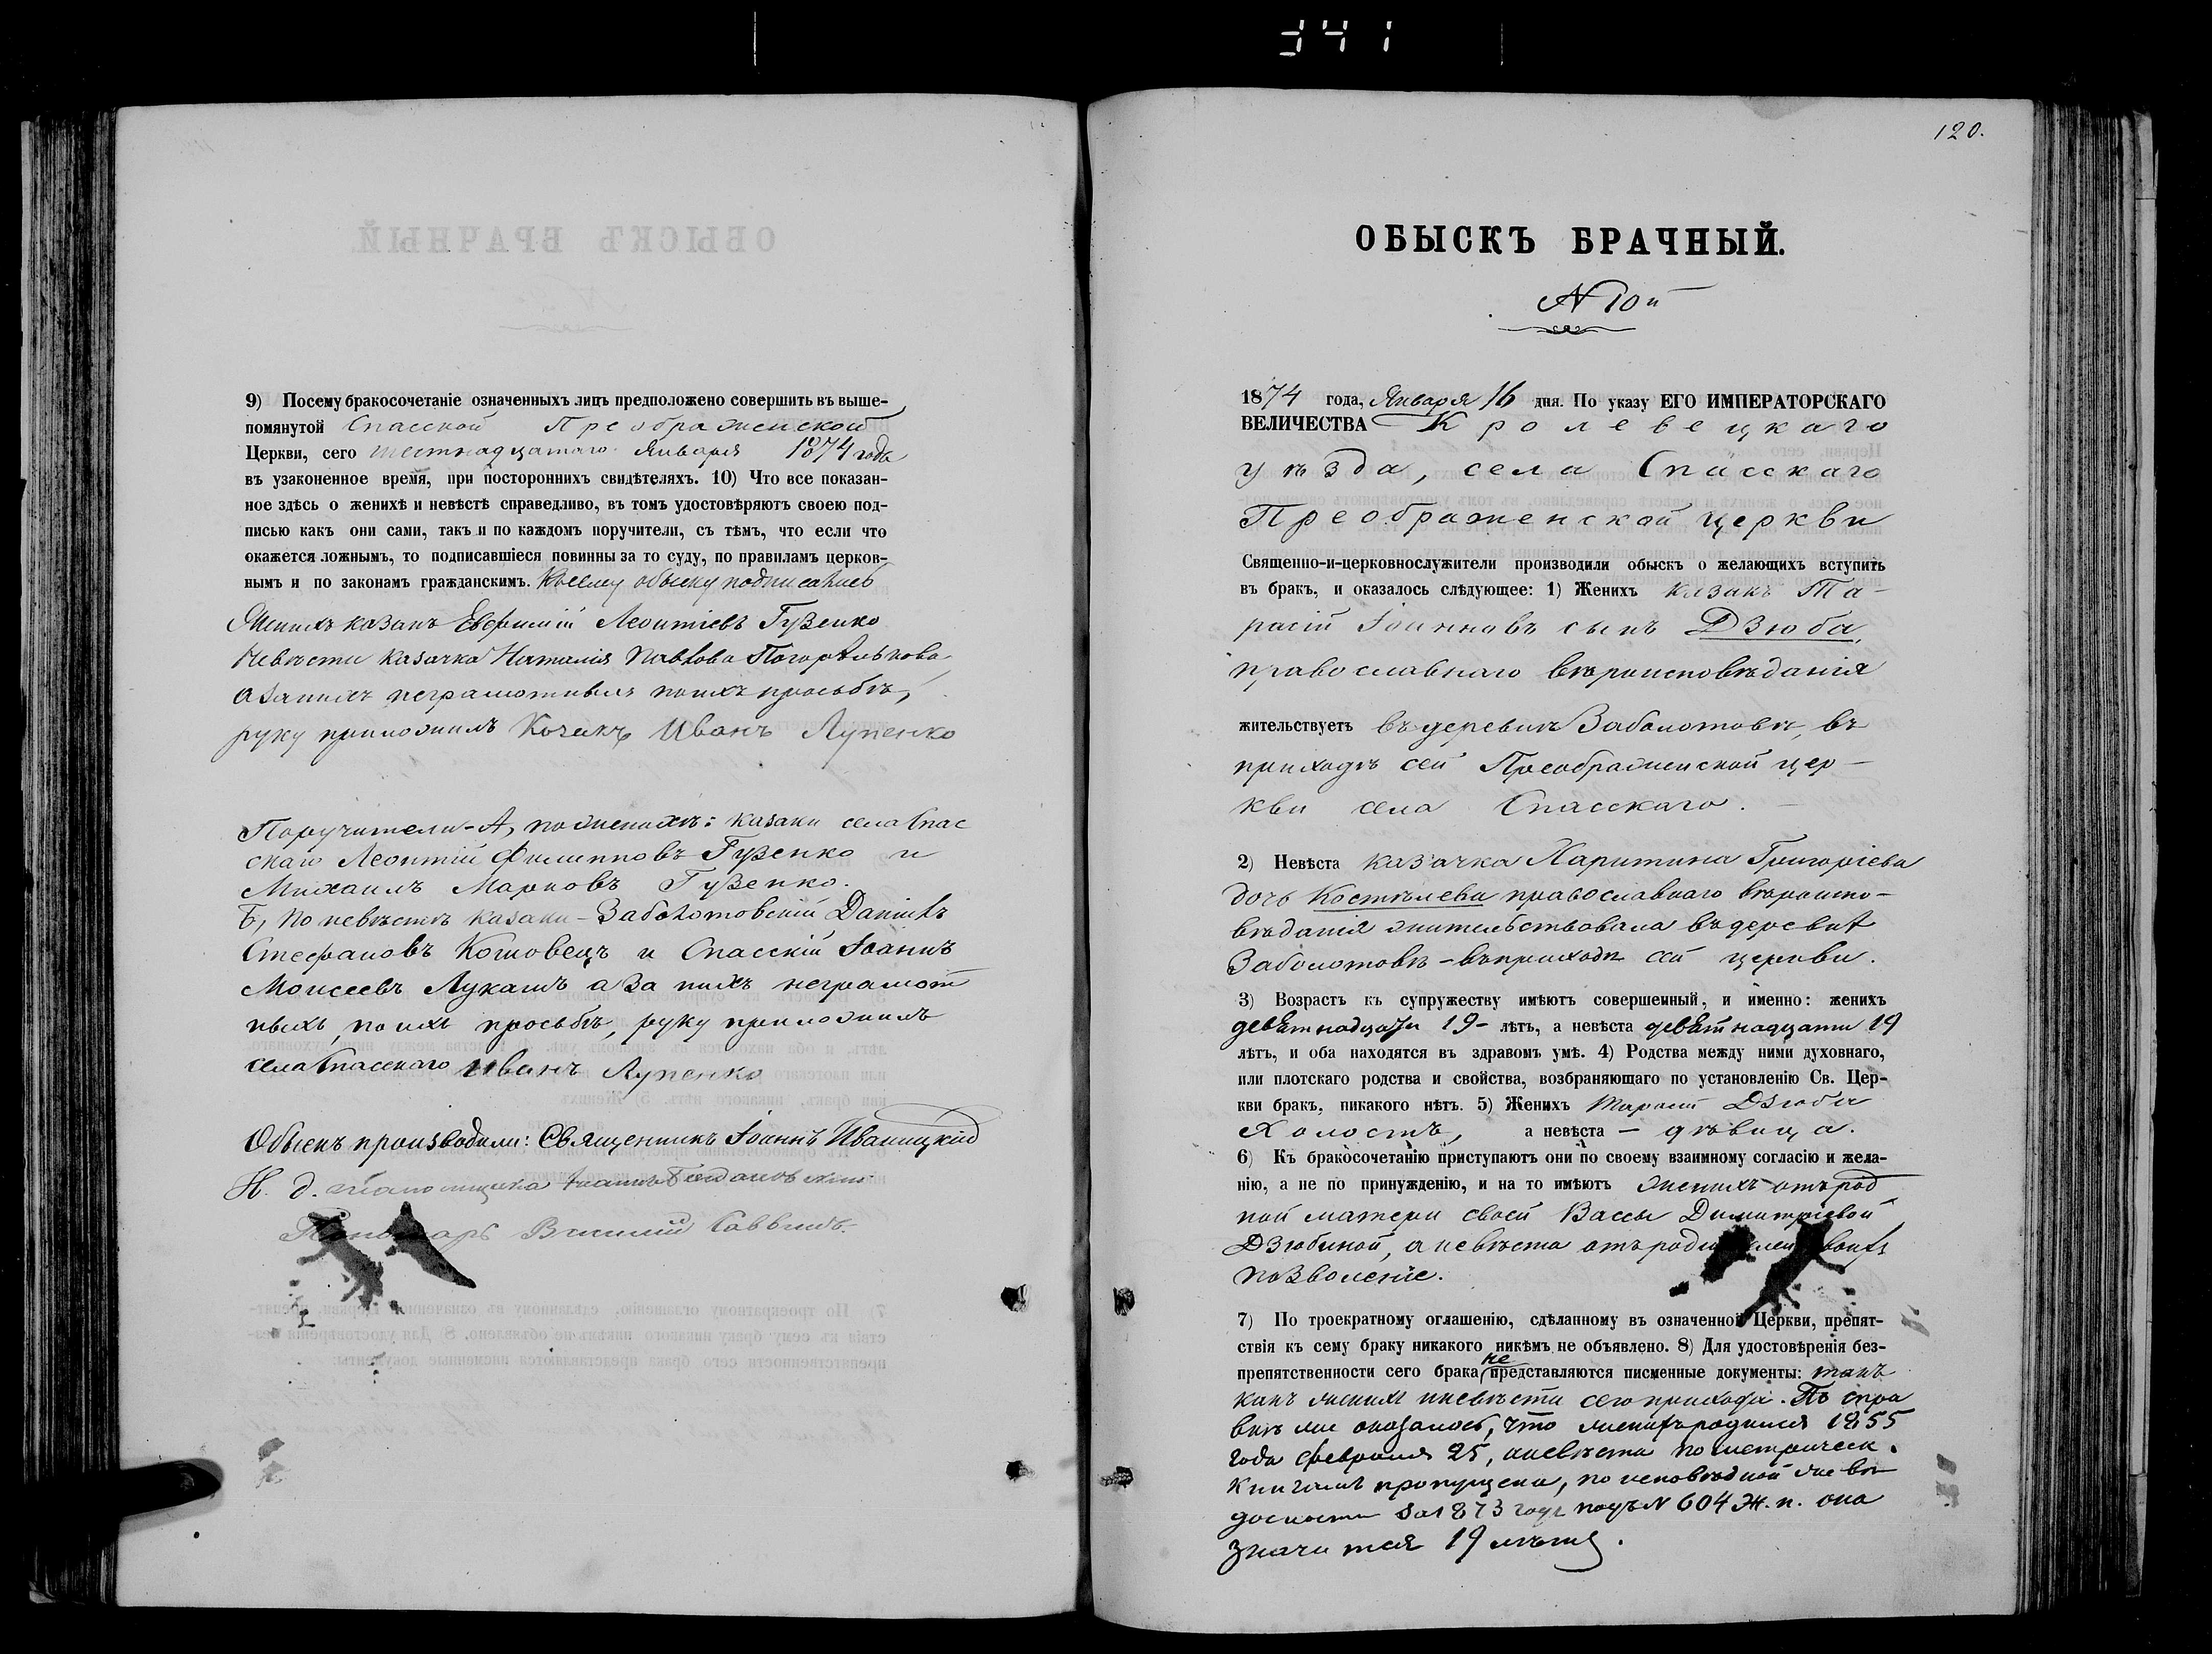 341
9) Посему бракосочетаніе означенныхъ лицъ предположено совершить въ выше-
помянутой Спасской Преображенской
Церкви, сего шестнадцатаго Января 1874 года
въ узаконенное время, при постороннихъ свидѣтеляхъ. 10) Что все показан-
ное здѣсь о женихѣ и невѣстѣ справедливо, въ томъ удостовѣряютъ своею под-
писью какъ они сами, такъ и по каждомъ поручители, съ тѣмъ, что если что
окажется ложнымъ, то подписавшіеся повинны за то суду, по правиламъ церков-
нымъ и по законамъ гражданскимъ. Къ сему обыску подписались
Женихъ казакъ Евфимій Леонтіевъ Гузенко
Невѣста казачка Наталія Павлова
а за нихъ неграмотныхъ по ихъ просьбѣ,
руку приложилъ Козакъ Иванъ Лупенко
Поручители - А, по женихѣ: казаки села Спас
скаго Леонтій Филипповъ Гузенко и
Михаилъ Марковъ Гузенко.
Б, по невѣстѣ казаки - Заболотовскій Даніилъ
Стефановъ Кошовецъ и Спасскій Іоаннъ
Моисеевъ Лукашъ а за нихъ неграмот
ныхъ, по ихъ просьбѣ, руку приложилъ
села Спасскаго Иванъ Лупенко
Обыскъ производили: Священникъ Іоаннъ Иваницкій
И. д. псаломщика
Пономарь Василій Саввичъ
120.
ОБЫСКЪ БРАЧНЫЙ.
N 10й
1874 года, Января 16 дня. По указу ЕГО ИМПЕРАТОРСКАГО
ВЕЛИЧЕСТВА Кролевецкаго
уѣзда, села Спасскаго
Преображенской церкви
Священно-и-церковнослужители производили обыскъ о желающихъ вступить
въ бракъ, и оказалось слѣдующее: 1) Женихъ казакъ Та-
расій Іоанновъ сынъ Дзюба,
православнаго вѣроисповѣданія
жительствуетъ въ деревнѣ Заболотовѣ, въ
приходѣ сей Преображенской цер-
кви села Спасскаго.
2) Невѣста казачка Харитина Григоріева
дочь Костылева православнаго вѣроиспо-
вѣданія жительствовала въ деревнѣ
Заболотовѣ - въ приходѣ сей церкви.
3) Возрастъ къ супружеству имѣютъ совершенный, и именно: женихъ
девятнадцати 19- лѣтъ, а невѣста девятнадцати 19
лѣтъ, и оба находятся въ здравомъ умѣ. 4) Родства между ними духовнаго,
или плотскаго родства и свойства, возбраняющаго по установленію Св. Цер-
кви бракъ, никакого нѣтъ. 5) Женихъ Тарасій Дзюба
Холостъ, а невѣста - дѣвица.
6) Къ бракосочетанію приступаютъ они по своему взаимному согласію и жела-
нію, а не по принужденію, и на то имѣютъ женихъ - отъ род
ной матери своей Вассы Димитріевой
Дзюбиной, а невѣста отъ родителей своихъ
позволеніе.
7) По троекратному оглашенію, сдѣланному въ означенной Церкви, препят-
ствія къ сему браку никакого никѣмъ не объявлено. 8) Для удостовѣренія без-
препятственности сего брака не представляются писменные документы: такъ
какъ женихъ и невѣста сего прихода. По спра
вкѣ же оказалось, что женихъ родился 1855
года февраля 25, а невѣста по метрическ.
книгамъ пропущена, по исповѣдной же вѣ
домости за 1873 годъ подъ N 604 ж. п. она
значится 19 лѣтъ.